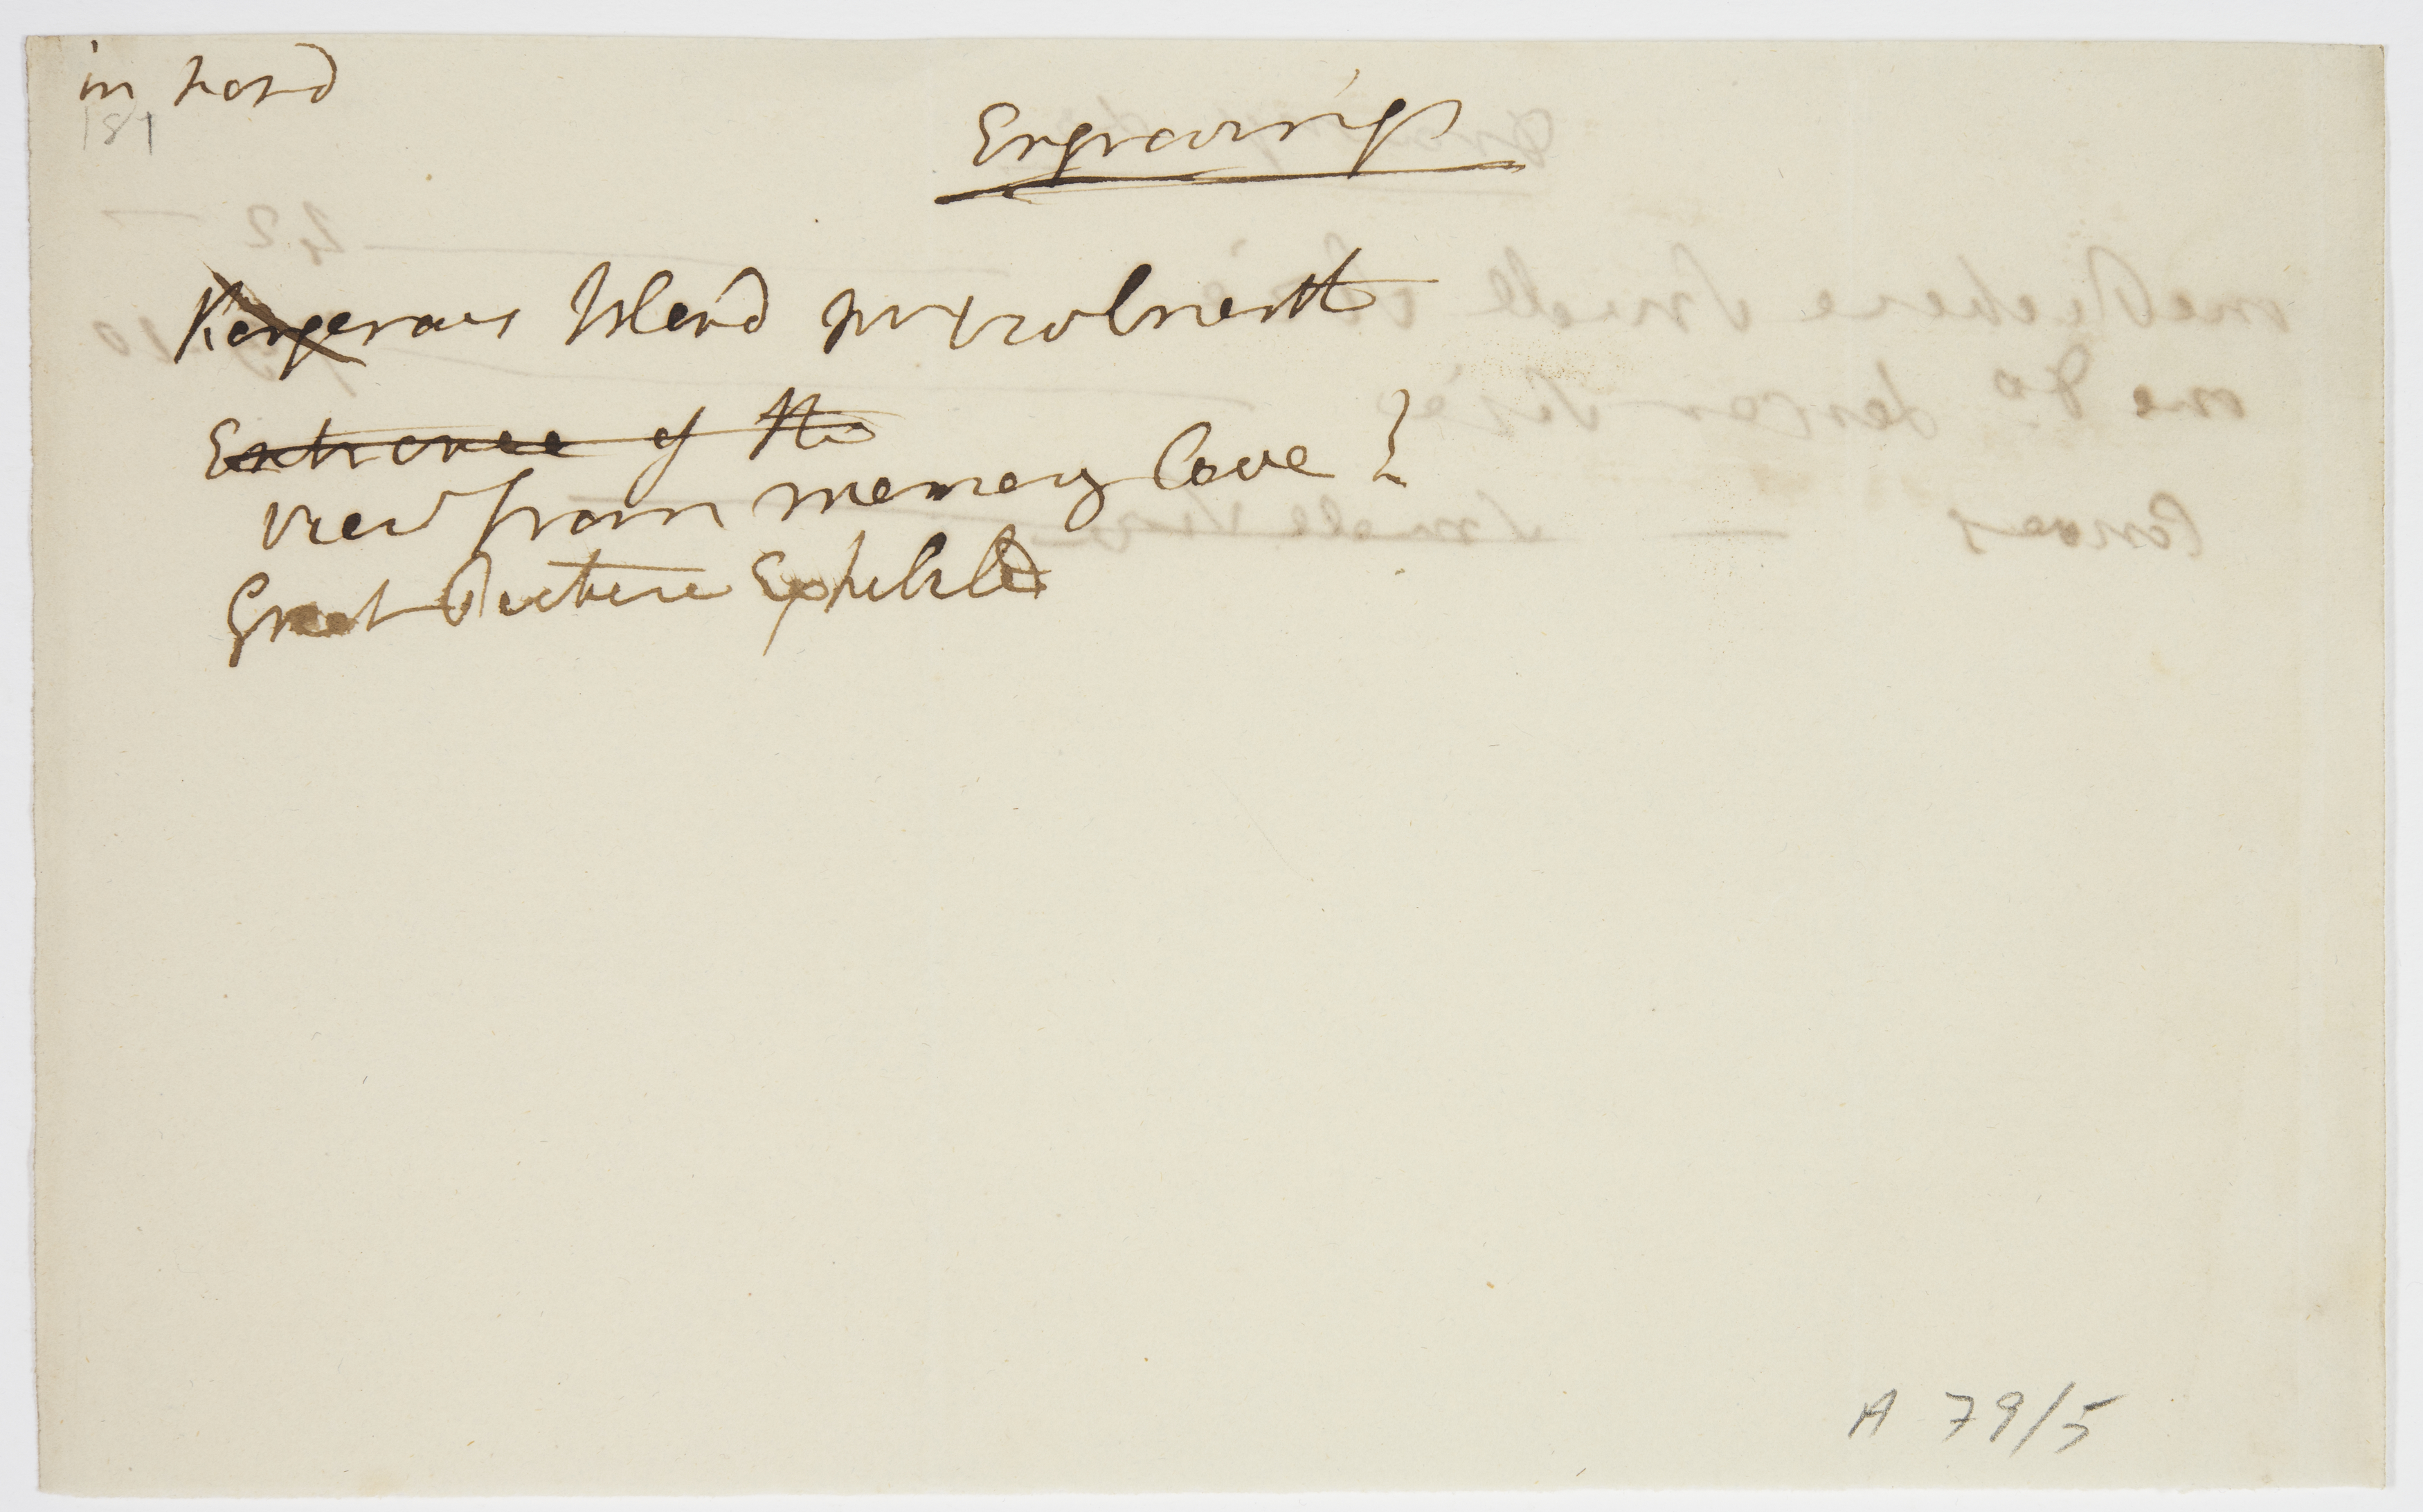 in hand
181
Engravings
Kangeraus Island Mr Woolnoth
Entrance of the
View from Memory Cove
Great Picture Exhibited
A 79/5